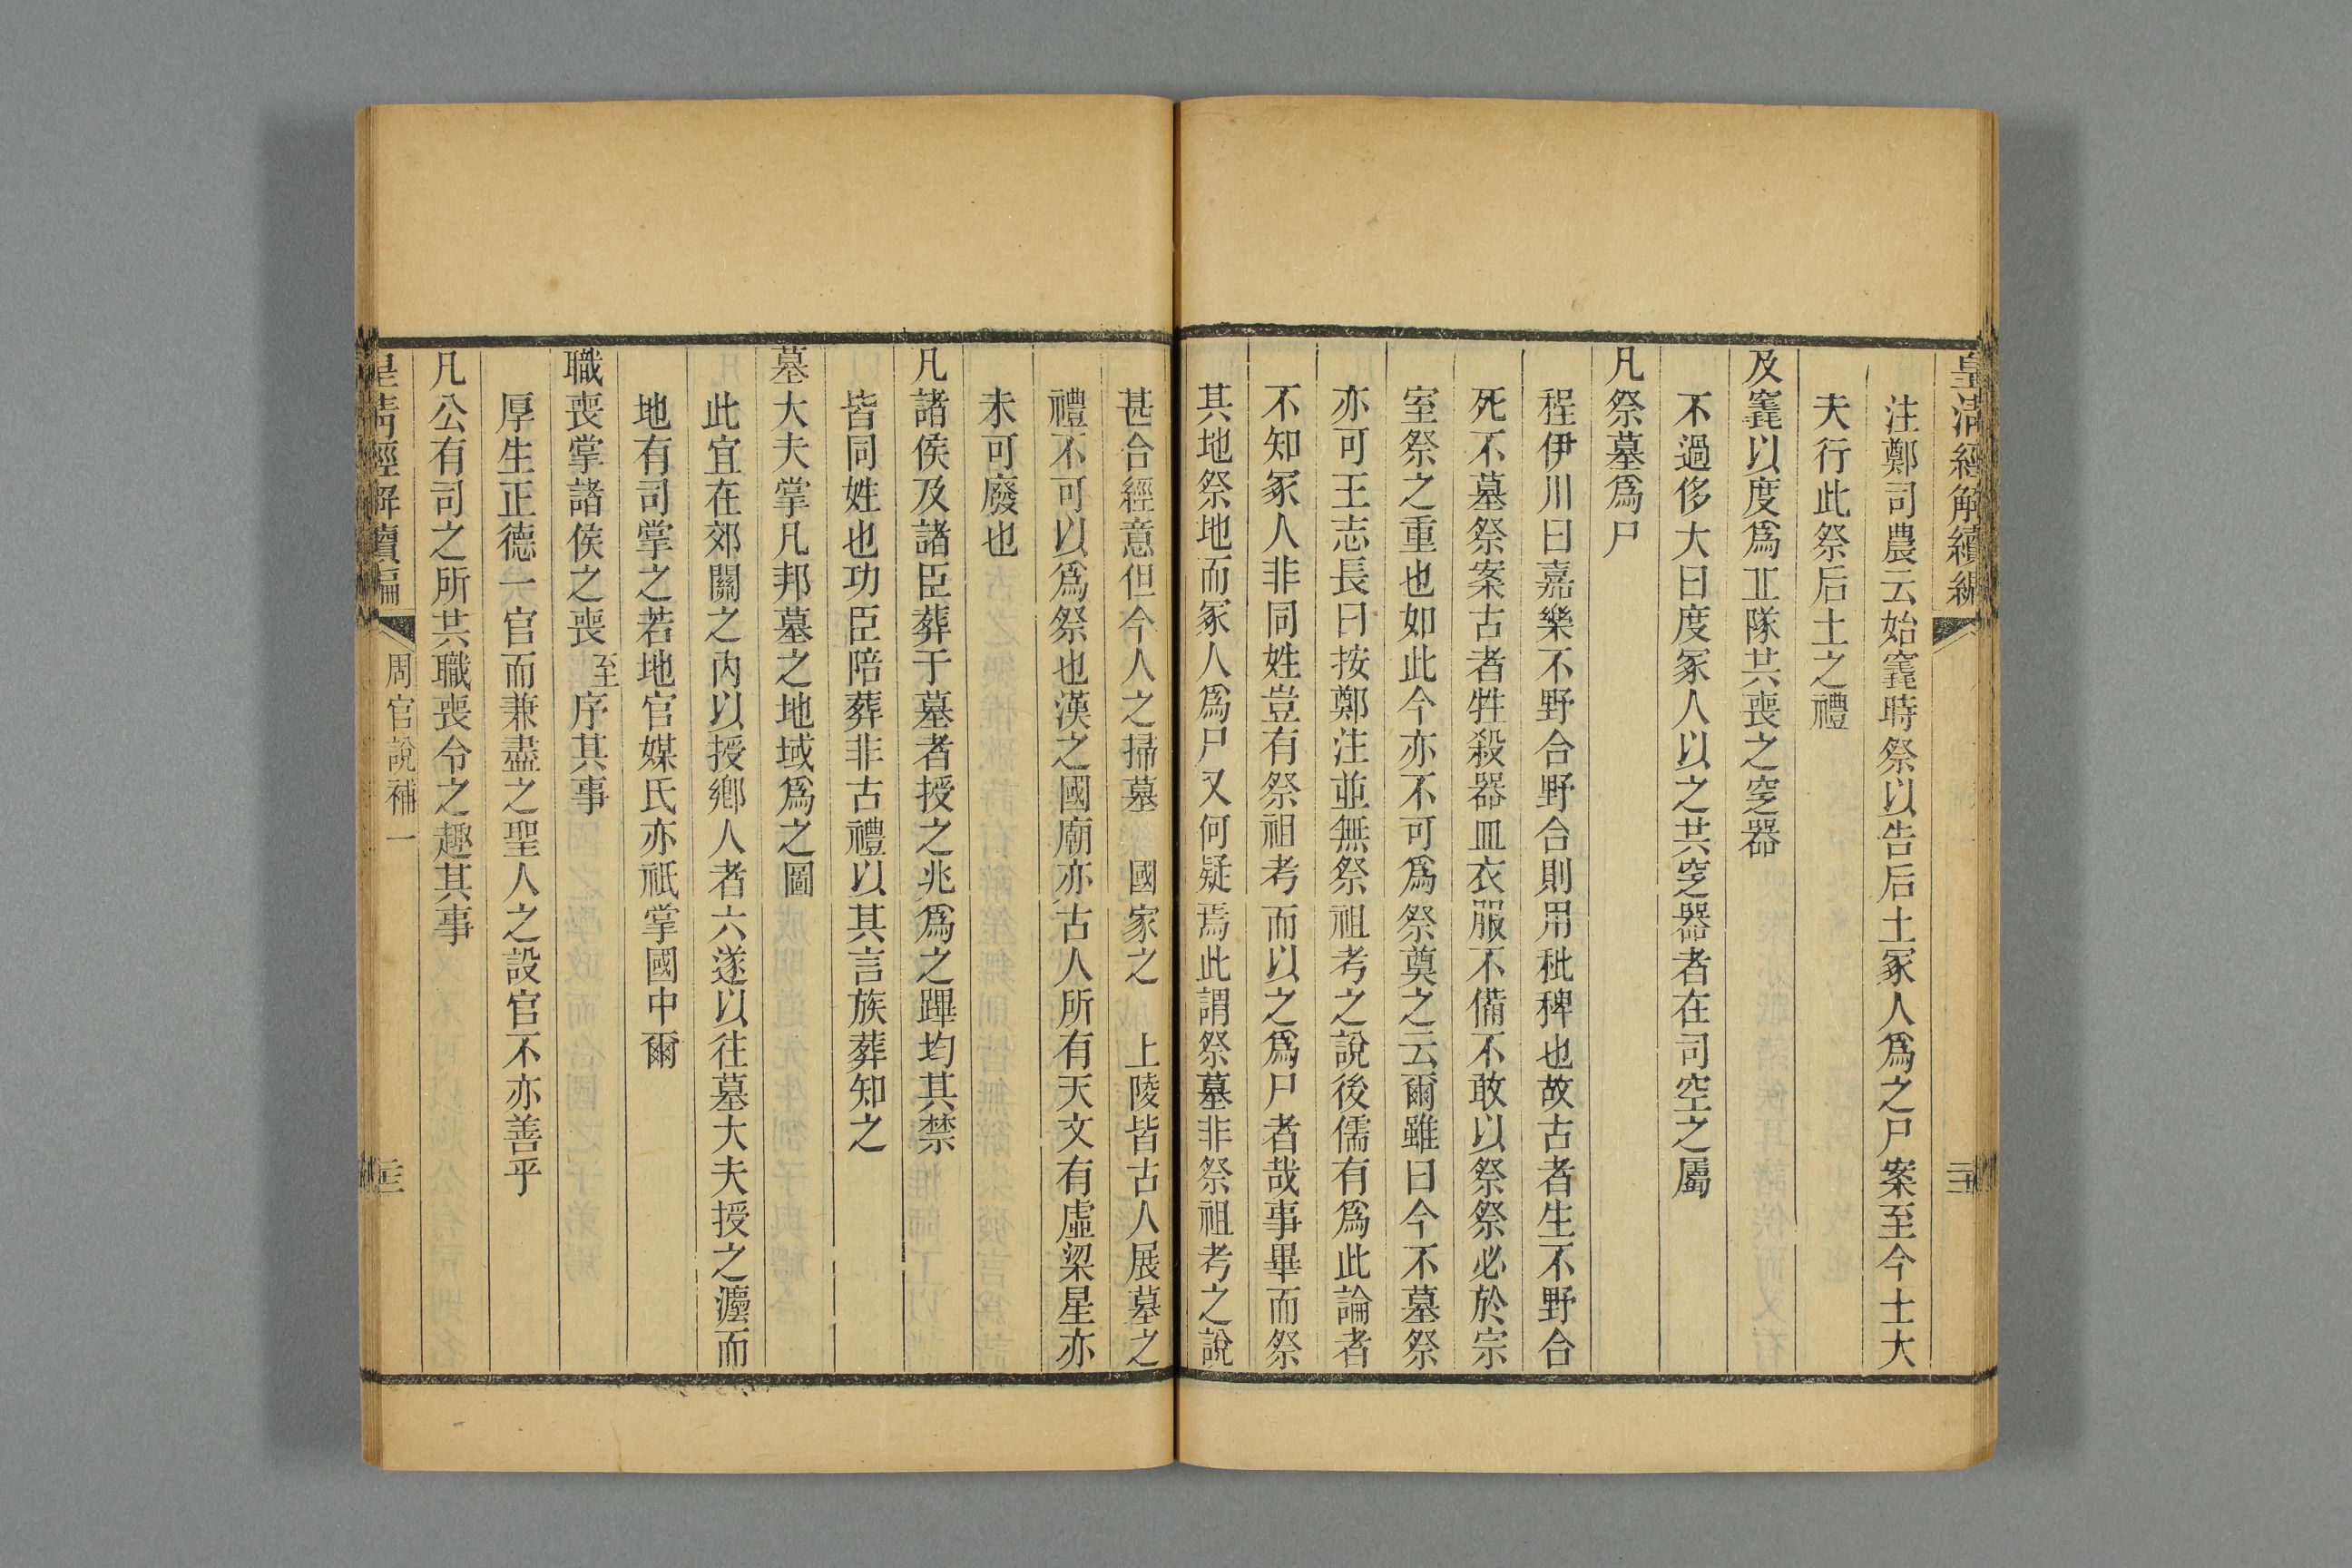 皇清經解續編
注鄭司農云始竁時祭以告后土冢人爲之尸案至今士大
夫行此祭后土之禮
及竁以度爲丘隧共喪之窆器
不過侈大曰度冢人以之共窆器者在司空之屬
凡祭墓爲尸
程伊川曰嘉樂不野合野合則用秕稗也故古者生不野合
死不墓祭案古者牲殺器皿衣服不備不敢以祭祭必於宗
室祭之重也如此今亦不可爲祭奠之云爾雖曰今不墓祭
亦可王志長曰按鄭注並無祭祖考之說後儒有爲此論者
不知冢人非同姓豈有祭祖考而以之爲尸者哉事畢而祭
其地祭地而冢人爲尸又何疑焉此謂祭墓非祭祖考之說
甚合經意但今人之掃墓 國家之 上陵皆古人展墓之
禮不可以爲祭也漢之國廟亦古人所有天文有虛梁星亦
未可廢也
凡諸侯及諸臣葬于墓者授之兆爲之蹕均其禁
皆同姓也功臣陪葬非古禮以其言族葬知之
墓大夫掌凡邦墓之地域爲之圖
此宜在郊關之內以授鄉人者六遂以往墓大夫授之灋而
地有司掌之若地官媒氏亦祇掌國中爾
職喪掌諸侯之喪至序其事
厚生正德一官而兼盡之聖人之設官不亦善乎
凡公有司之所共職喪令之趣其事
皇清經解續編 周官說補一